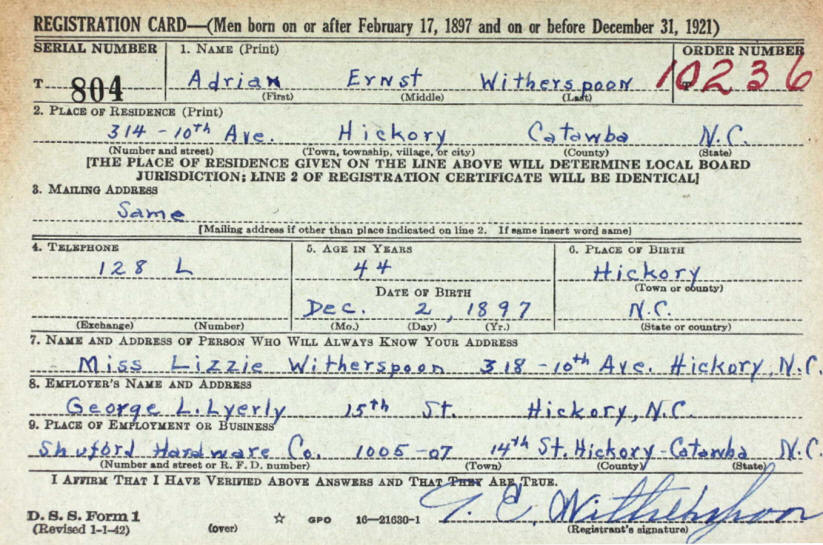 REGISTRATION CARD—(Men born on or after February 17, 1897 and on or before December 31, 1921)
SERIAL NUMBER 1. NAME (Print) ORDER NUMBER
T 804 Adrian Ernst Witherspoon 10236
(First) (Middle) (Last)
2. PLACE OF RESIDENCE (Print)
314 - 10th Ave. Hickory Catawba N.C.
(Number and street) (Town, township, village, or city) (County) (State)
[THE PLACE OF RESIDENCE GIVEN ON THE LINE ABOVE WILL DETERMINE LOCAL BOARD
JURISDICTION; LINE 2 OF REGISTRATION CERTIFICATE WILL BE IDENTICAL]
3. MAILING ADDRESS
Same
[Mailing address if other than place indicated on line 2. If same insert word same]
4. TELEPHONE 5. AGE IN YEARS 6. PLACE OF BIRTH
128 L 44 Hickory
(Town or county)
DATE OF BIRTH
Dec. 2, 1897 N.C.
(Exchange) (Number) (Mo.) (Day) (Yr.) (State or country)
7. NAME AND ADDRESS OF PERSON WHO WILL ALWAYS KNOW YOUR ADDRESS
Miss Lizzie Witherspoon 318 - 10th Ave. Hickory, N.C.
8. EMPLOYER'S NAME AND ADDRESS
George L. Lyerly 15th St. Hickory, N.C.
9. PLACE OF EMPLOYMENT OR BUSINESS
Shuford Hardware Co. 1005-07 14th St. Hickory - Catawba N.C.
(Number and street or R. F. D. number) (Town) (County) (State)
I AFFIRM THAT I HAVE VERIFIED ABOVE ANSWERS AND THAT THEY ARE TRUE.
D. S. S. Form 1 E. Witherspoon
(Revised 1-1-42) (over) ☆ GPO 16—21630-1 (Registrant's signature)